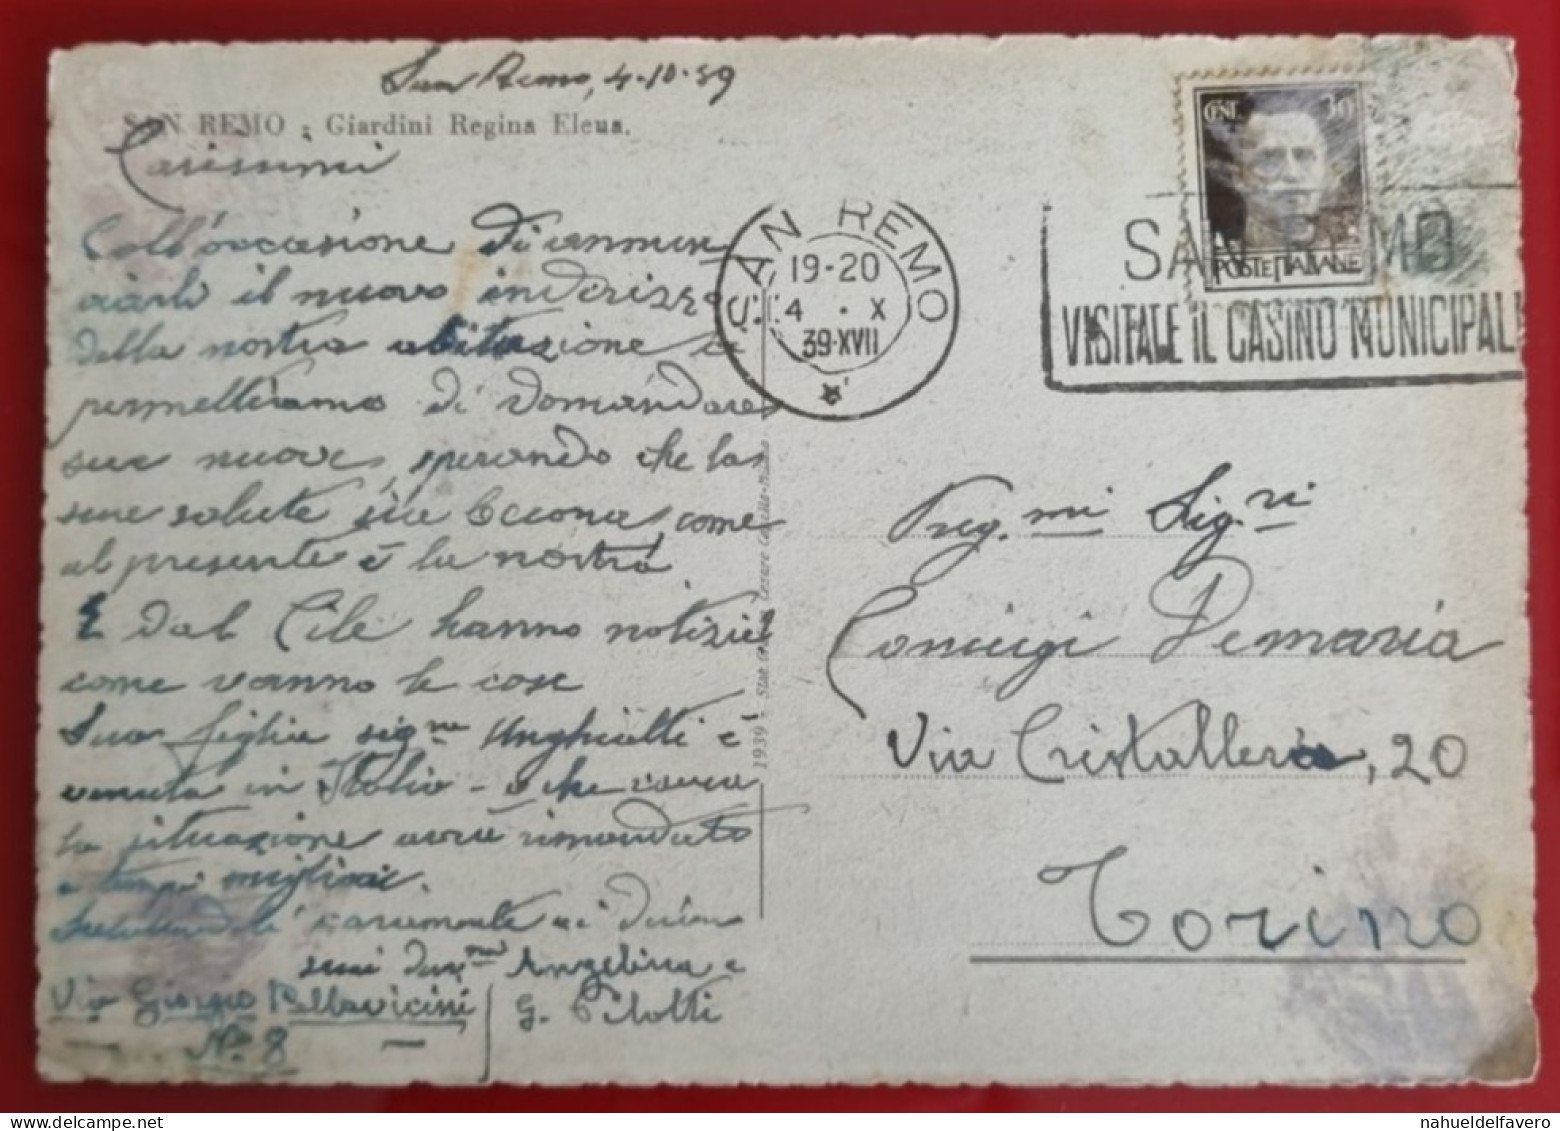 San Remo, 4-10-39
SAN REMO - Giardini Regina Elena.
Carissimi
Coll'occasione di annun
ciarli il nuovo inderizzo
della nostra abitazione ci
permettiamo di domandare
sue nuove, sperando che la
sue salute sia buona, come
al presente è la nostra
E dal Cile hanno notizie
come vanno le cose
Sua figlia sigᵐᵃ Unghiatti è
venuta in Italia - o che causa
la situazione avrà rimandato
a tempi migliori.
Salutandoli caramente ci diciam
suoi devᵐⁱ Angelina e
G. Pilotti
Via Giorgio Pallavicini
N° 8
1939 -
SAN REMO
19-20
4 · X
39·XVII
CENT. 30
POSTE ITALIANE
SAN REMO
VISITATE IL CASINO MUNICIPALE
Preg.mi Sig.ri
Coniugi Demaria
Via Cristalleria, 20
Torino
nahueldelfavero